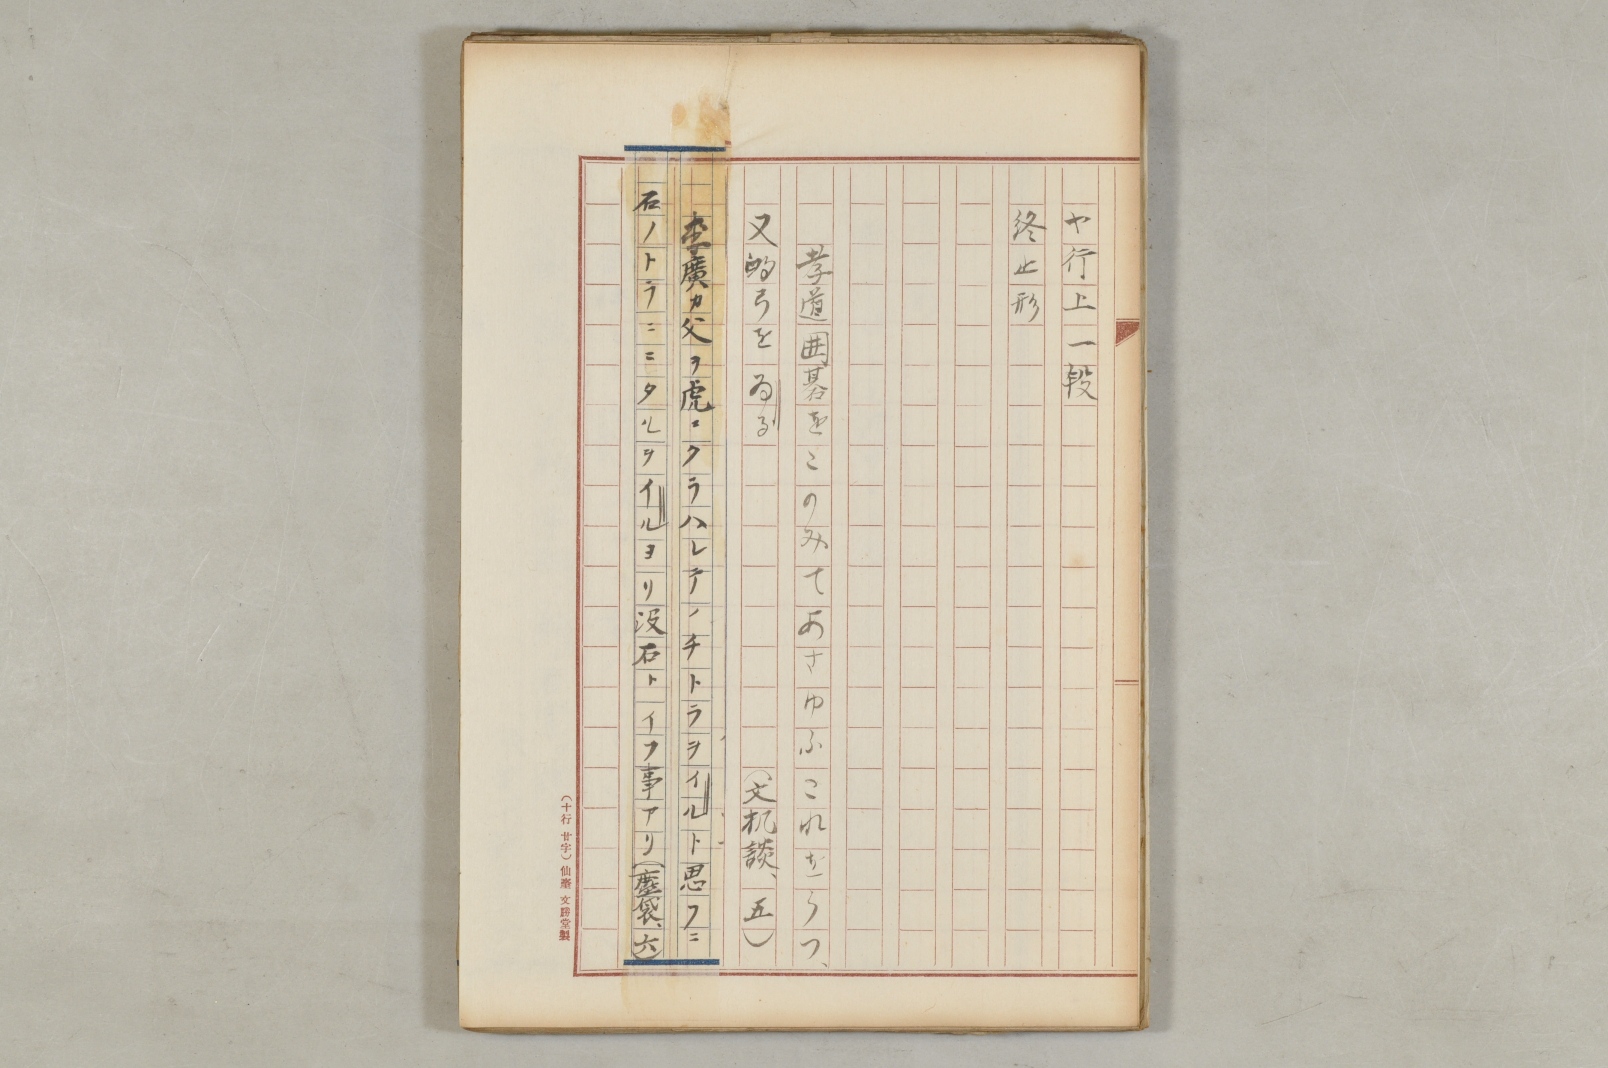 ヤ行上一段
終止形
孝道囲碁をこのみてあさゆふこれをうつ、
又的弓をゐる（文机談、五）
李廣カ父ヲ虎ニクラハレテノチトラヲイルト思フニ
石ノトラニニタルヲイルヨリ没石トイフ事アリ（塵袋、六）
（十行 廿字）仙臺 文勝堂製